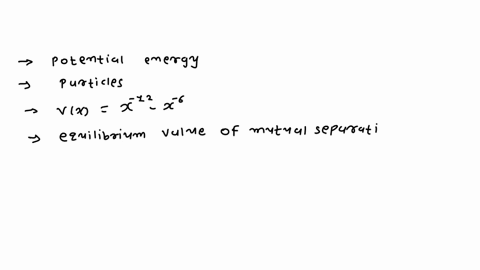 → potential energy
→ particles
→ v(x) = x⁻¹² - x⁻⁶
→ equilibrium value of mutual separati